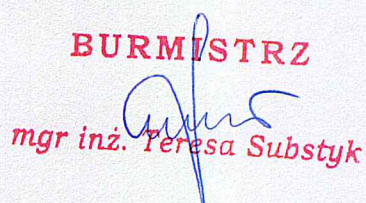 BURMISTRZ
mgr inż. Teresa Substyk